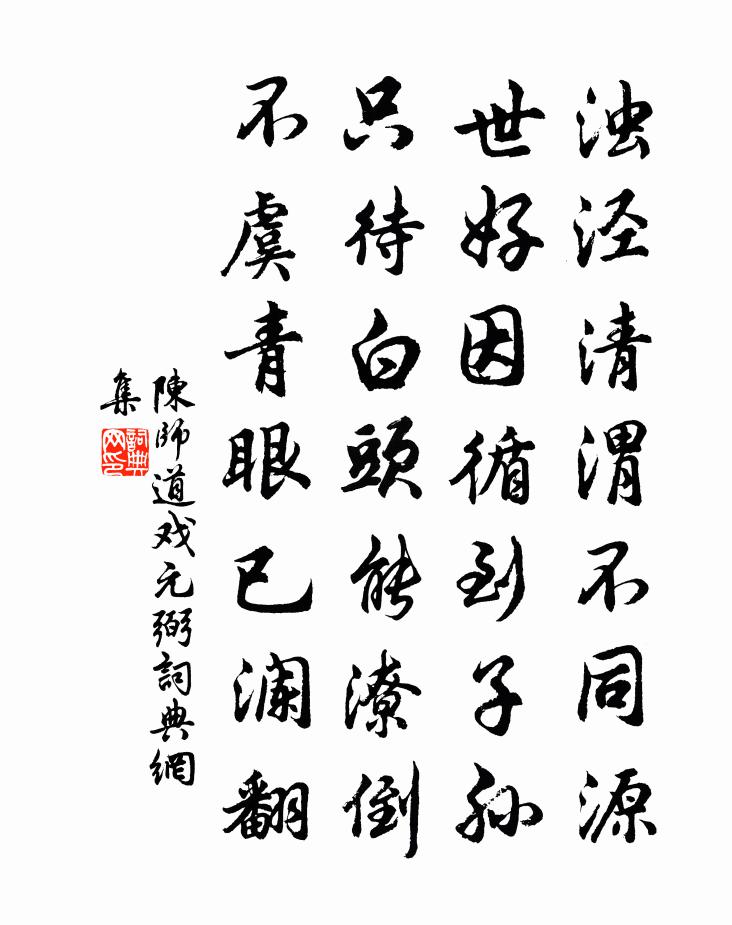 浊泾清渭不同源
世好因循到子孙
只待白頭能潦倒
不虞青眼已澜翻
陳師道戏元弼詞典網
集
詞典网印